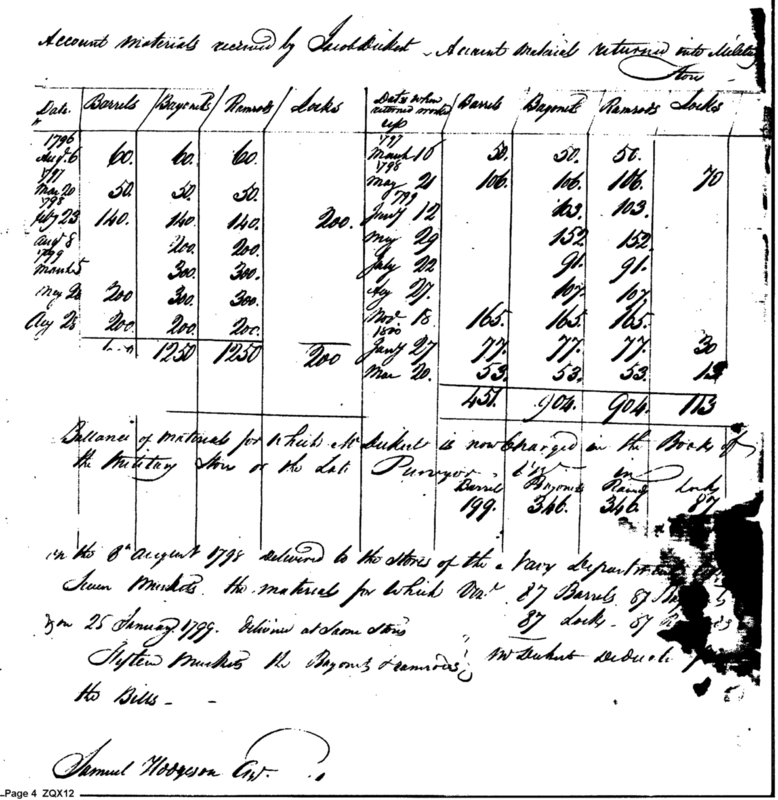 Account materials received by Jacob Dickert - Account material returned into Military
Store
Date Barrels Bayonets Ramrods Locks Date when returned worked up Barrels Bayonets Ramrods Locks
1796 1797
Augt 6 60. 60. 60. March 16 50. 50. 50.
1797 1798
Mar 20 50. 50. 50. May 21 106. 106. 106. 70
1798 1799
July 23 140. 140. 140. 200. Jany 12 103. 103.
Augt 8 200. 200. May 29 152 152
1799
March 5 300. 300. July 22 91. 91.
May 28 200 300. 300. Ag 27. 107. 107
Aug 28 200. 200. 200. Novr 18. 165. 165. 165.
1800
1250 1250 200 Jany 27 77. 77. 77. 30
Mar 20. 53. 53. 53. 13
451. 904. 904. 113
Ballance of materials for which Mr Dickert is now Charged in the Books of
the Military Store or the Late Purveyor
Barrel Bayonets Ramrd Locks
199. 346. 346. 87
on the 8th August 1798 delivered to the Stores of the Navy Department
Seven Muskets the materials for which 87 Barrels 87
87 Locks 87
on 25 January 1799. Delivered at Same Store
Fifteen Muskets the Bayonets & ramrods Mr Dickert Deducts
the Bills - -
Samuel Hodgeson
Page 4 ZQX12